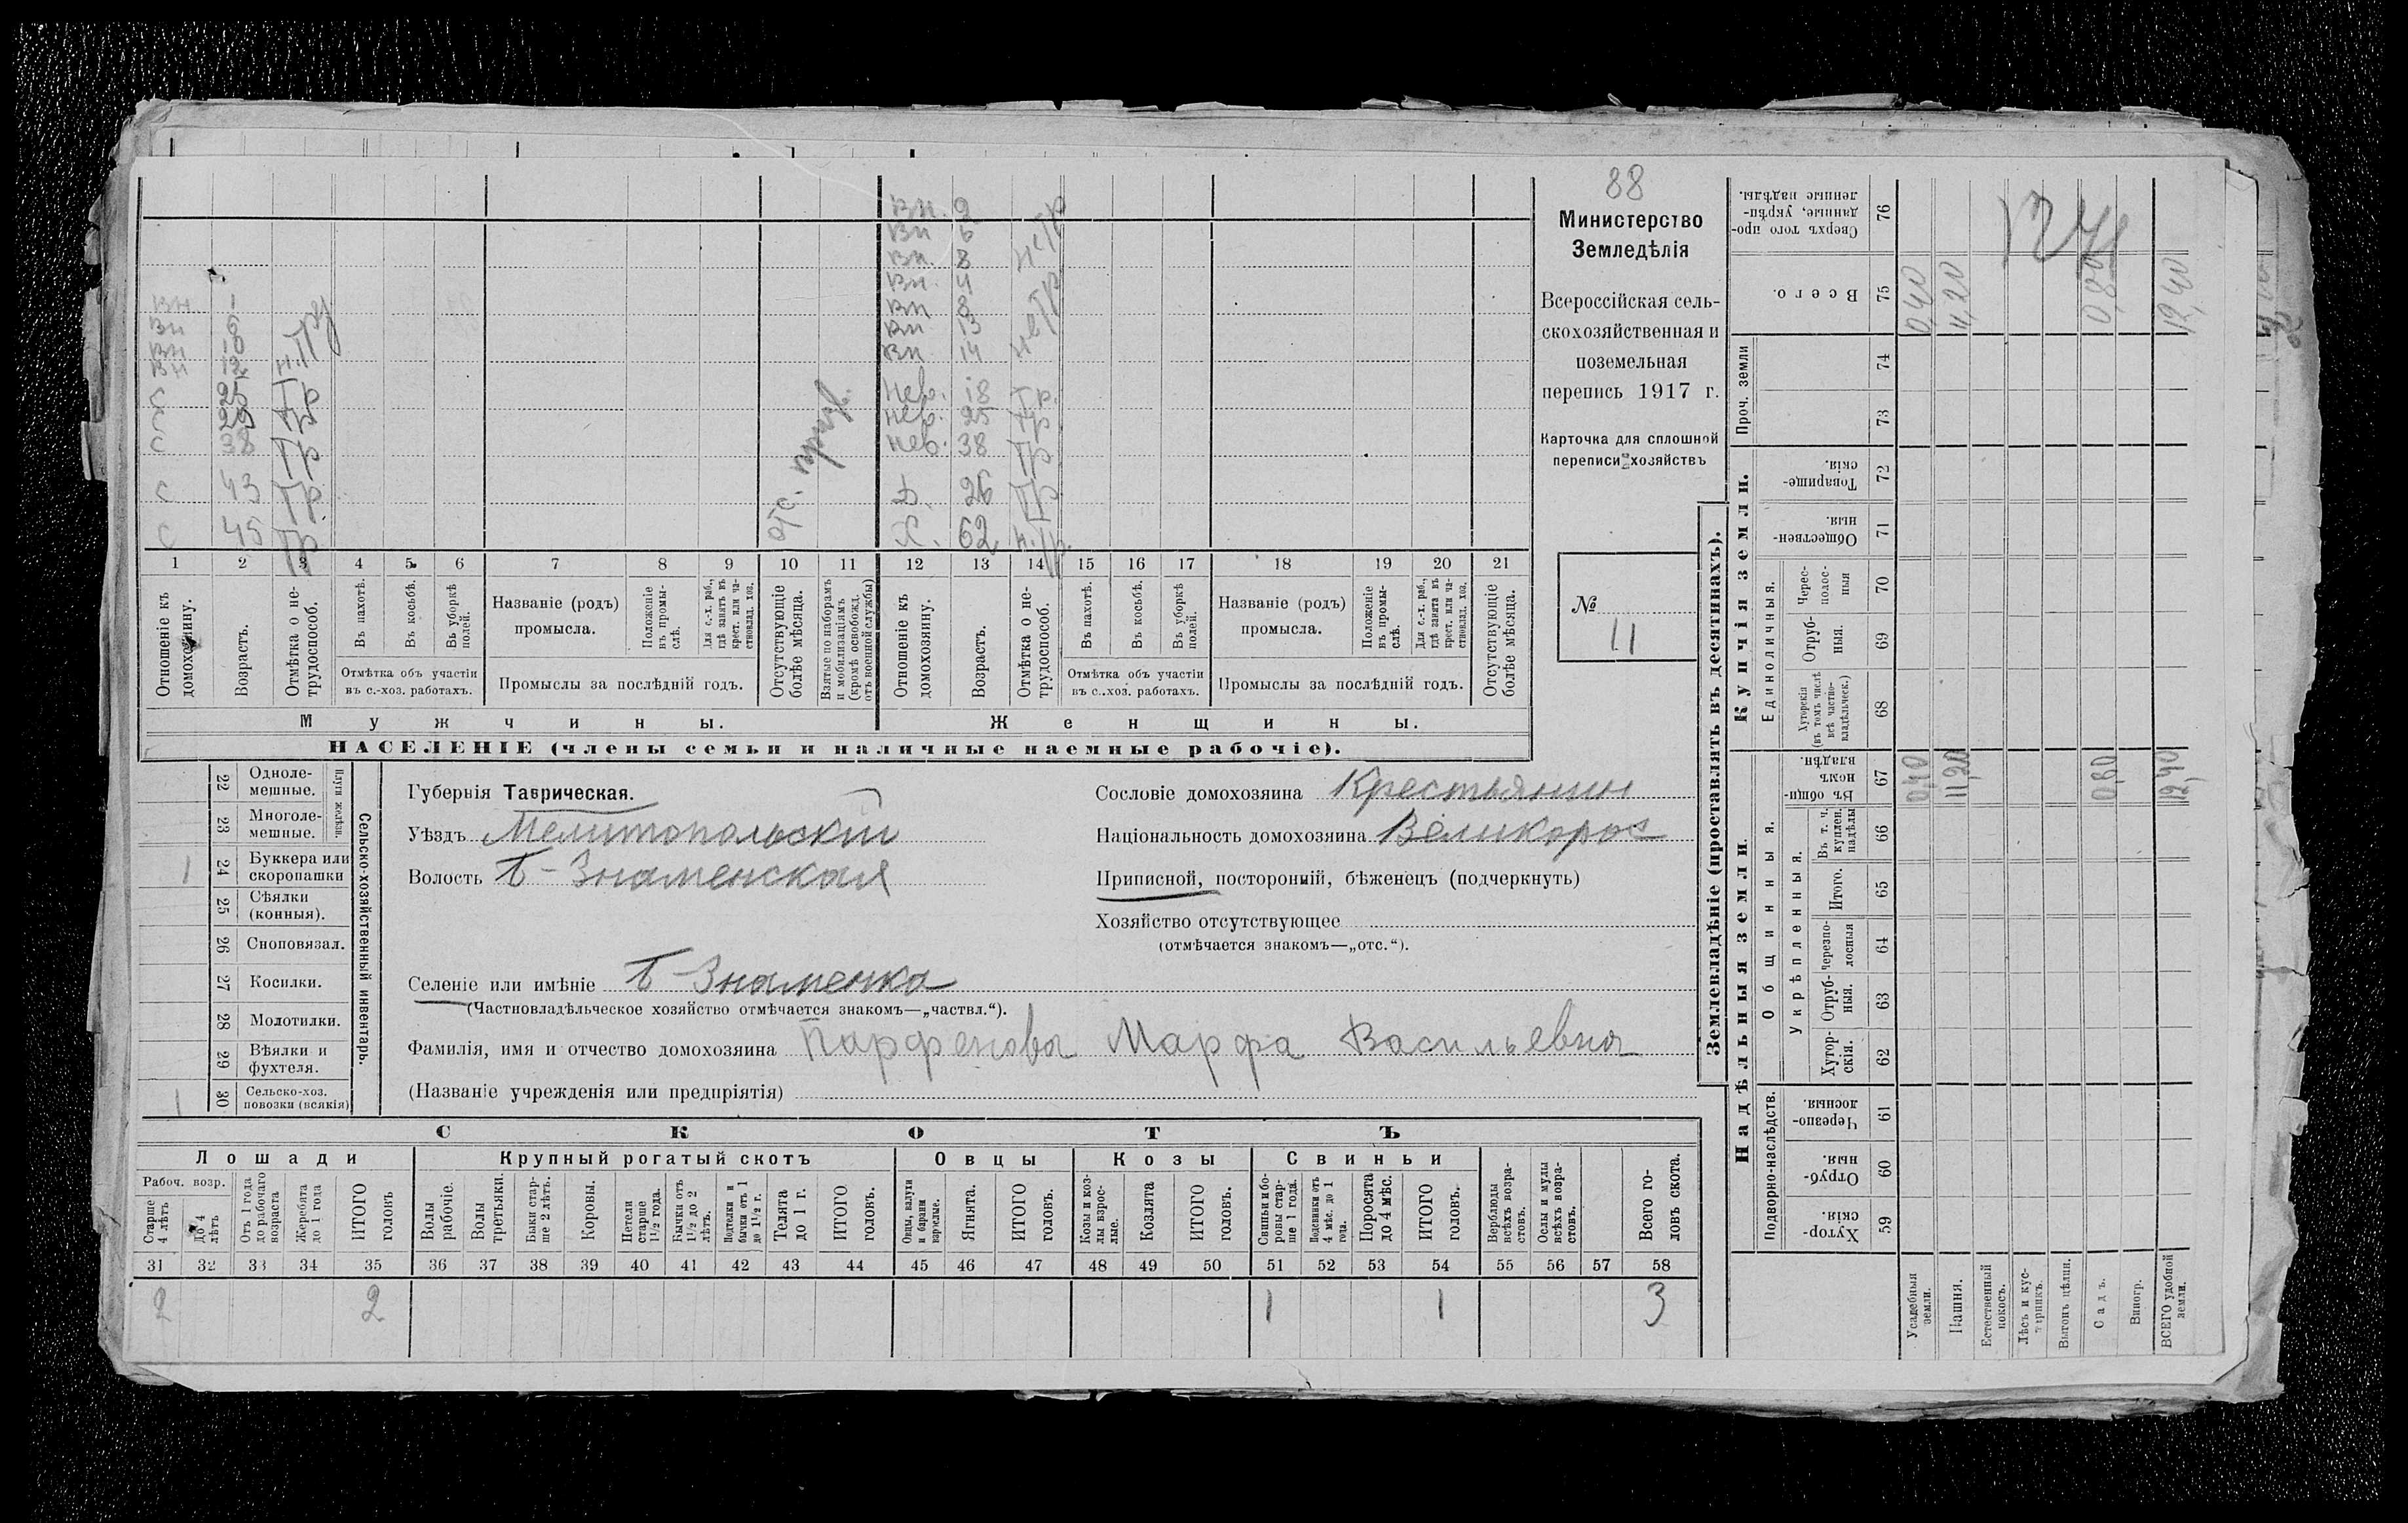 88
Министерство
Земледѣлія
Всероссійская сель-
скохозяйственная и
поземельная
перепись 1917 г.
Карточка для сплошной
переписи хозяйствъ
№
11
Вн. 2
Вн 6
Вн. 8
Вн. 4
Вн 8
Вн 13
Вн 14
Нев. 18 Тр.
Нев. 25 Тр
Нев. 38 Тр
Д. 26 Тр
Х. 62 н.Тр.
Вн 1
Вн 6
Вн 10
Вн 12 н.Тр
С 25 Тр
С 29 Тр
С 38 Тр
С 43 Тр.
С 45 Тр
отс.
1 2 3 4 5 6 7 8 9 10 11 12 13 14 15 16 17 18 19 20 21
Отношеніе къ домохозяину.
Возрастъ.
Отмѣтка о не-трудоспособ.
Въ пахотѣ.
Въ косьбѣ.
Въ уборкѣ полей.
Отмѣтка объ участіи
въ с.-хоз. работахъ.
Названіе (родъ)
промысла.
Положеніе въ промы-слѣ.
Для с.-х. раб., гдѣ занятъ въ крест. или ча-стновлад. хоз.
Промыслы за послѣдній годъ.
Отсутствующіе болѣе мѣсяца.
Взятые по наборамъ и мобилизаціямъ (кромѣ освобожд. отъ военной службы)
Отношеніе къ домохозяину.
Возрастъ.
Отмѣтка о не-трудоспособ.
Въ пахотѣ.
Въ косьбѣ.
Въ уборкѣ полей.
Отмѣтка объ участіи
въ с.-хоз. работахъ.
Названіе (родъ)
промысла.
Положеніе въ промы-слѣ.
Для с.-х. раб., гдѣ занята въ крест. или ча-стновлад. хоз.
Промыслы за послѣдній годъ.
Отсутствующіе болѣе мѣсяца.
Мужчины.
Женщины.
НАСЕЛЕНІЕ (члены семьи и наличные наемные рабочіе).
Сельско-хозяйственный инвентарь.
Плуги желѣзн.
22 Одноле-мешные.
23 Многоле-мешные.
1 24 Буккера или скоропашки
25 Сѣялки (конныя).
26 Сноповязал.
27 Косилки.
28 Молотилки.
29 Вѣялки и фухтеля.
1 30 Сельско-хоз. повозки (всякія)
Губернія Таврическая.
Уѣздъ Мелитопольскій
Волость Б-Знаменская
Селеніе или имѣніе Б-Знаменка
(Частновладѣльческое хозяйство отмѣчается знакомъ—„частвл.“).
Фамилія, имя и отчество домохозяина Парфенова Марфа Васильевна
(Названіе учрежденія или предпріятія)
Сословіе домохозяина Крестьянин
Національность домохозяина Великорос
Приписной, посторонній, бѣженецъ (подчеркнуть)
Хозяйство отсутствующее
(отмѣчается знакомъ—„отс.“).
СКОТЪ
Лошади
Крупный рогатый скотъ
Овцы
Козы
Свиньи
Рабоч. возр.
Старше 4 лѣтъ
До 4 лѣтъ
Отъ 1 года до рабочаго возраста
Жеребята до 1 года
ИТОГО головъ
Волы рабочіе.
Волы третьяки.
Быки стар-ше 2 лѣтъ.
Коровы.
Нетели старше 1½ года.
Бычки отъ 1½ до 2 лѣтъ.
Подтелки и бычки отъ 1 до 1½ г.
Телята до 1 г.
ИТОГО головъ.
Овцы, валухи и бараны взрослые.
Ягнята.
ИТОГО головъ.
Козы и коз-лы взрос-лые.
Козлята
ИТОГО головъ.
Свиньи и бо-ровы стар-ше 1 года.
Подсвинки отъ 4 мѣс. до 1 года.
Поросята до 4 мѣс.
ИТОГО головъ.
Верблюды всѣхъ возра-стовъ.
Ослы и мулы всѣхъ возра-стовъ.
Всего го-ловъ скота.
31 32 33 34 35 36 37 38 39 40 41 42 43 44 45 46 47 48 49 50 51 52 53 54 55 56 57 58
2 2 1 1 3
Землевладѣніе (проставлять въ десятинахъ).
Надѣльныя земли.
Купчія земли.
Проч. земли
Подворно-наслѣдств.
Общинныя.
Укрѣпленныя.
Единоличныя.
Хутор-скія. 59
Отруб-ныя. 60
Черезпо-лосныя 61
Хутор-скія. 62
Отруб-ныя. 63
Черезпо-лосныя 64
Итого. 65
Въ т. ч. куплен. надѣлы 66
Въ общин-номъ владѣн. 67
Хуторскія (въ томъ числѣ всѣ частно-владѣльческ.) 68
Отруб-ныя. 69
Черес-полос-ныя 70
Обществен-ныя. 71
Товарище-скія. 72
73
74
Всего. 75
Сверхъ того про-данные, укрѣп-ленные надѣлы. 76
Усадебныя земли. 0,40 0,40
Пашня. 11,20 11,20
Естественный покосъ.
Лѣсъ и кус-тарникъ.
Выгонъ цѣлин.
Садъ. 0,80 0,80
Виногр.
ВСЕГО удобной земли. 12,40 12,40